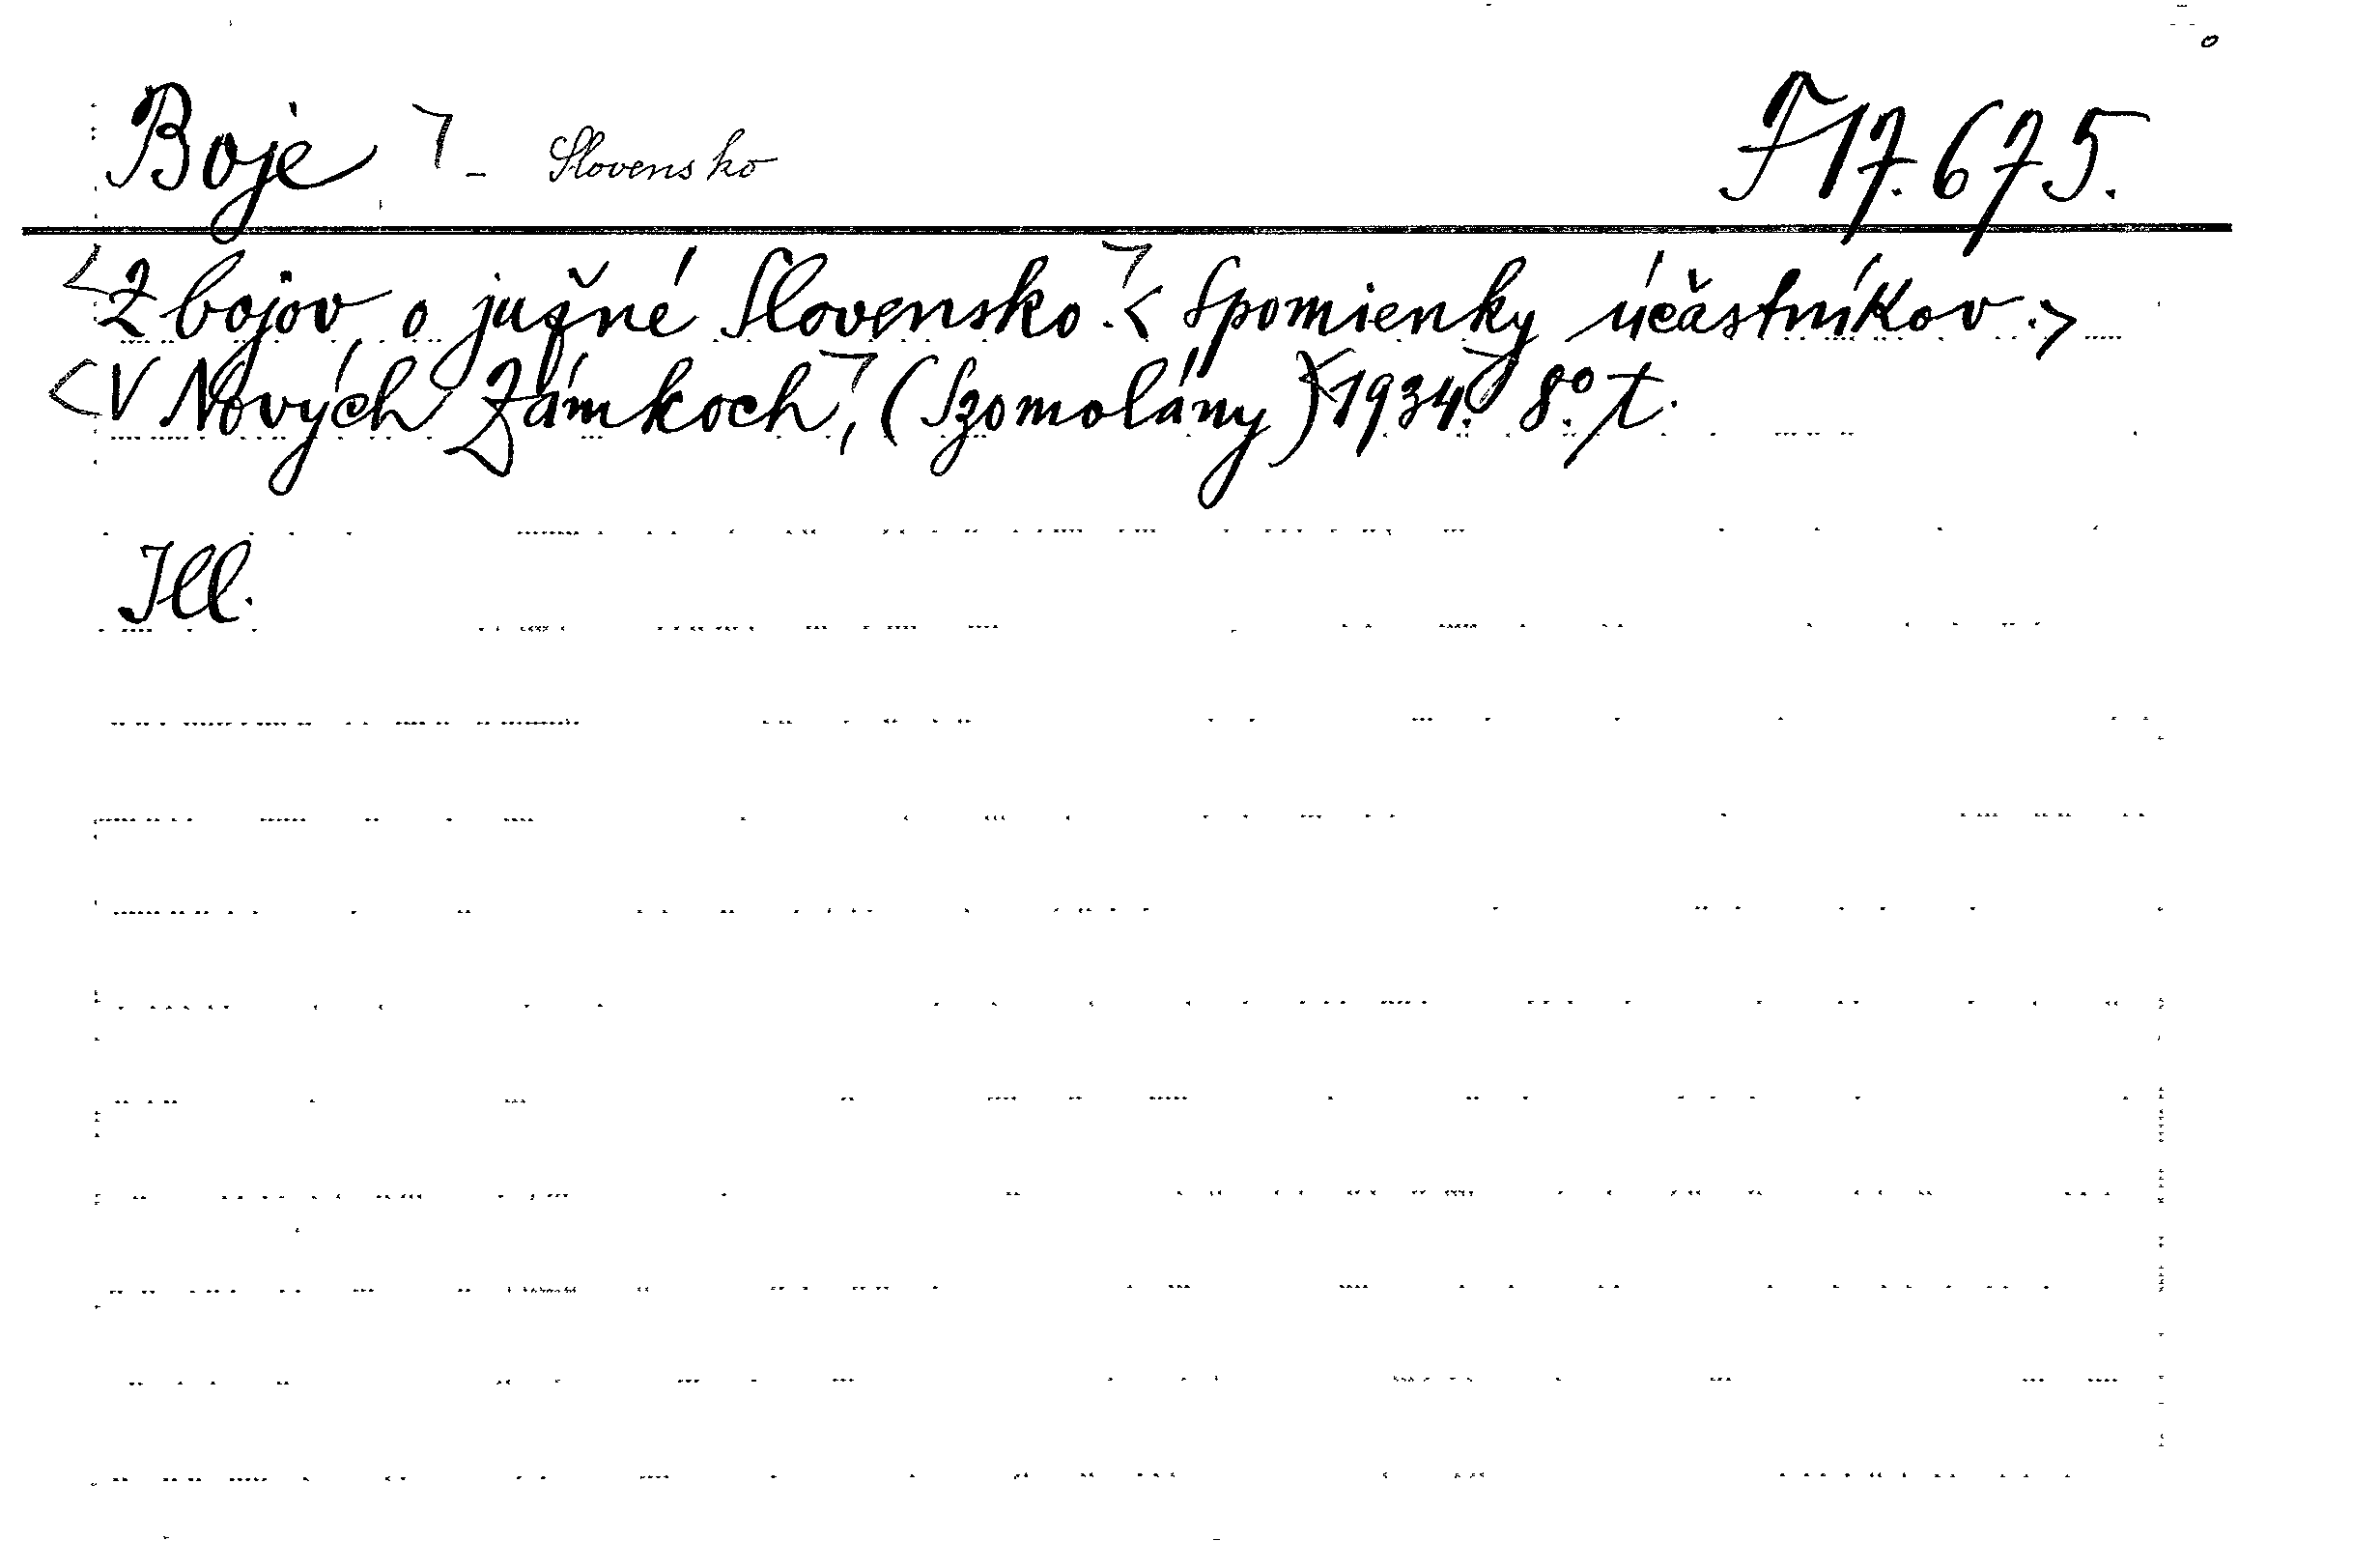 Boje ⌝ - Slovensko F 17.675.
<Z bojov o južné Slovensko.⌝ < Spomienky účastníkov.>
<V Nových Zámkoch⌝, (Szomolány) <1934.⌝ 8° t.
Ill.